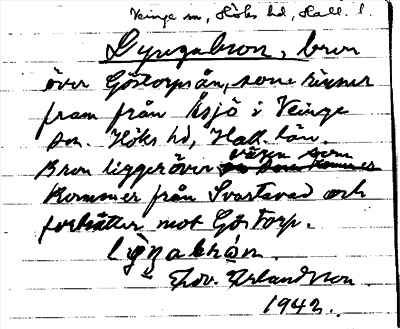 Veinge sn, Höks hd, Hall. l.
Lyngabron, bron
över Göstorpsån, som rinner
fram från Åsjö i Veinge
sn. Höks hd, Hall. län.
Bron ligger över vägen som
kommer från Svartavad och
fortsätter mot Göstorp.
Erlandsson
1942.